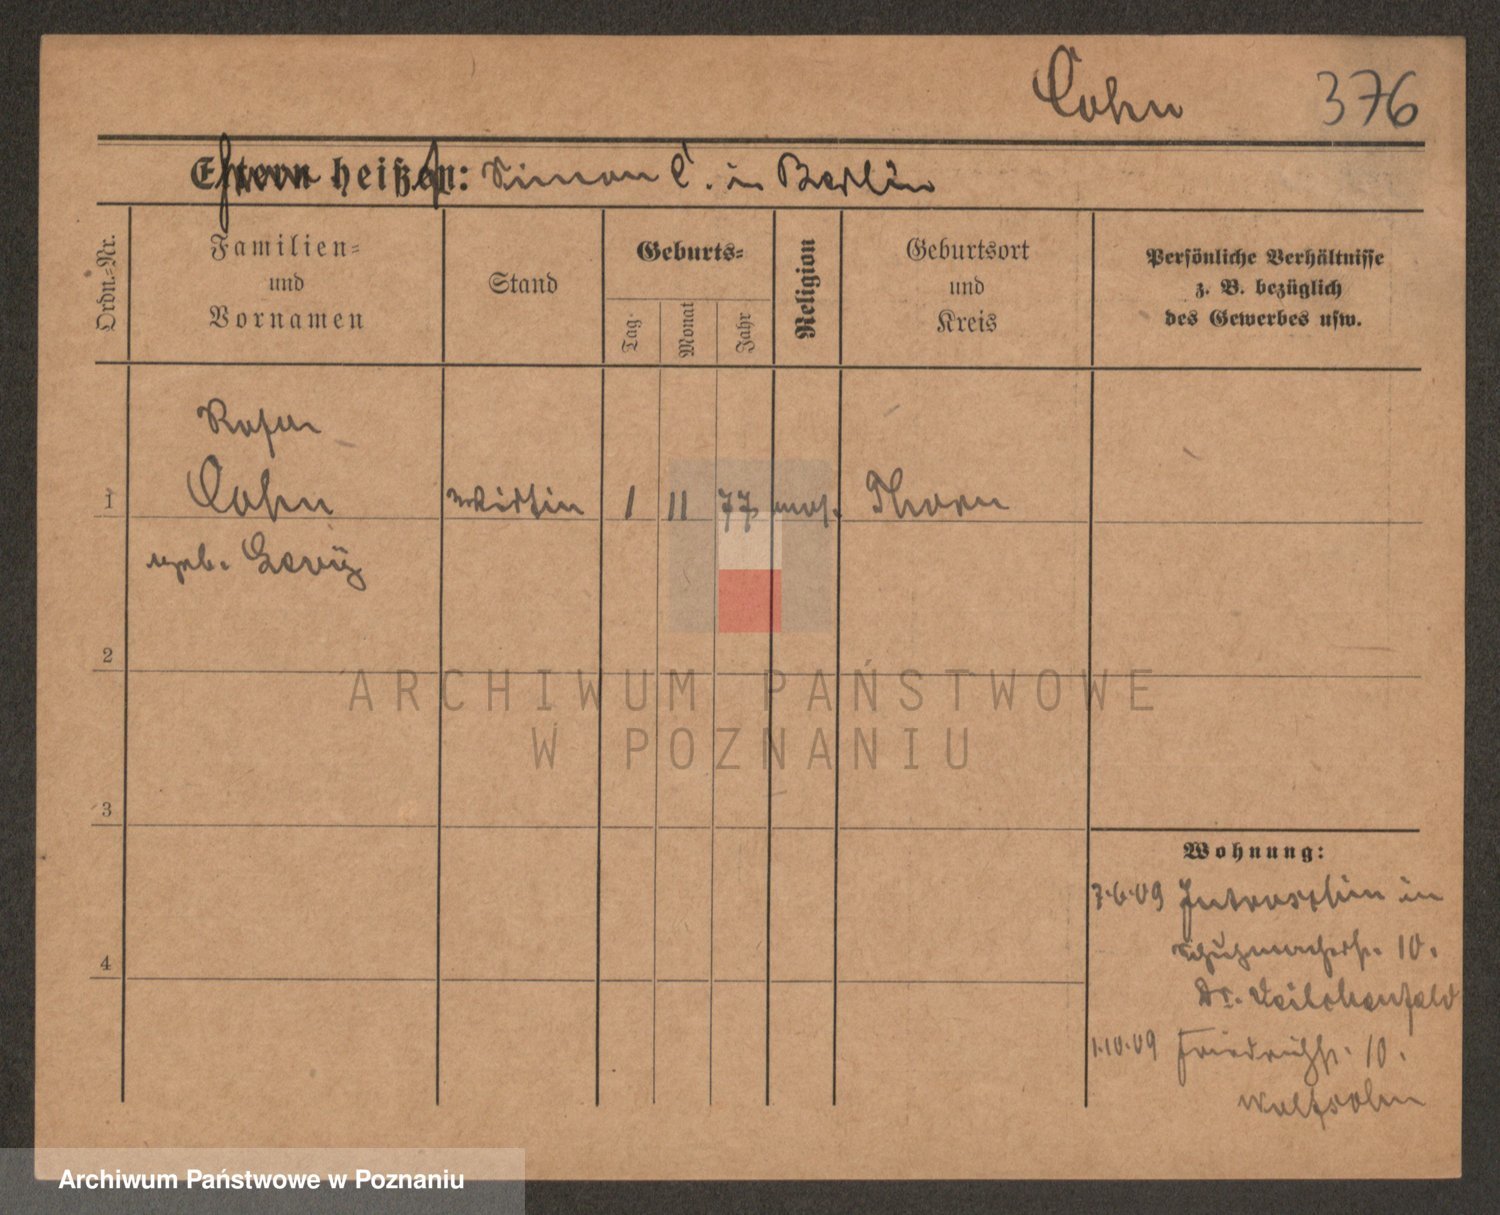 Cohn 376
Eltern heißen: Simon C. in Berlin
Ordn.-Nr.
Familien-
und
Vornamen
Stand
Geburts-
Tag.
Monat
Jahr
Religion
Geburtsort
und
Kreis
Persönliche Verhältnisse
z. B. bezüglich
des Gewerbes usw.
Rosa
1 Cohn Wirtin 1 11 77 mos. Thorn
geb. Levÿ
2
3
4
Wohnung:
7.6.09 Jutroschin in
Schuhmacherstr. 10.
Dr. Veilchenfeld
1.10.09 Friedrichstr. 10.
Wolfsohn
ARCHIWUM PAŃSTWOWE
W POZNANIU
Archiwum Państwowe w Poznaniu